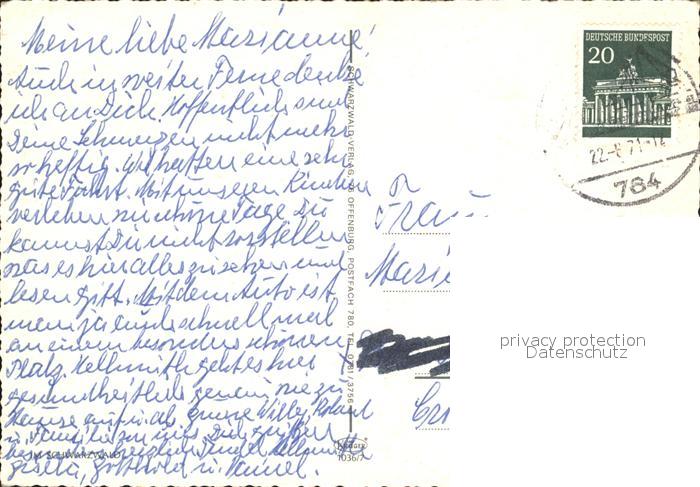 Meine liebe Marianne!
Auch in weiter Ferne denke
ich an Dich. Hoffentlich sind
Deine Schmerzen nicht mehr
so heftig. Wir hatten eine sehr
gute Fahrt. Mit unseren Kindern
verleben wir schöne Tage. Du
kannst Dir nicht vorstellen
was es hier alles zu sehen und
lesen gibt. Mit dem Auto ist
man ja auch schnell mal
an einem besonders schönen
Platz. Hellmuth geht es hier
gesundheitlich genau wie zu
Hause
Willy
u. Familie
Gisela, u. Daniel.
IM SCHWARZWALD
SCHWARZWALD-VERLAG, 76 OFFENBURG, POSTFACH 780, TEL. 0781/3756
KRÜGER
1036/7
DEUTSCHE BUNDESPOST
20
784
Frau
Mari
privacy protection
Datenschutz